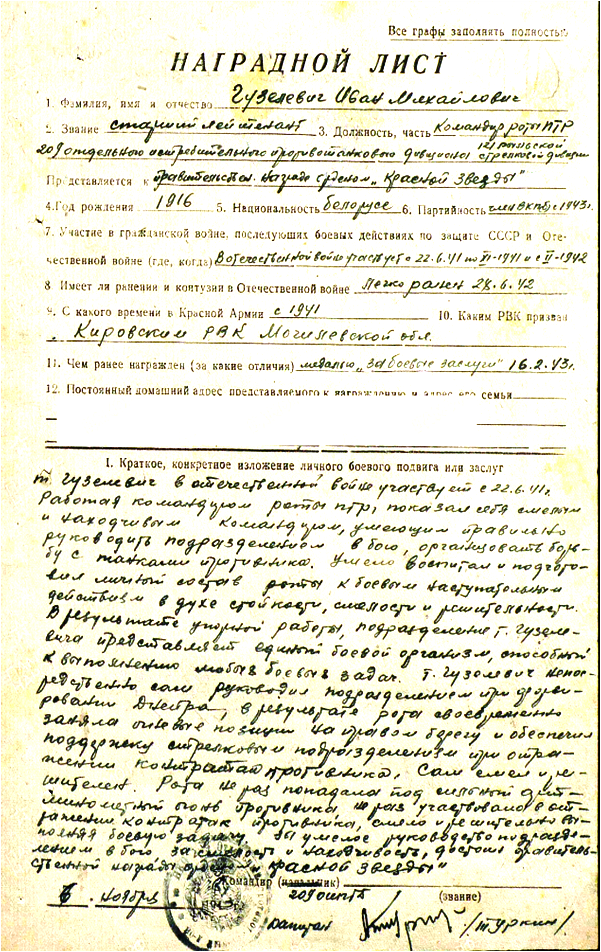 Все графы заполнять полностью
НАГРАДНОЙ ЛИСТ
1. Фамилия, имя и отчество Гузелевич Иван Михайлович
2. Звание старший лейтенант 3. Должность, часть Командир роты ПТР
209 отдельного истребительного противотанкового дивизиона 121 Рыльской стрелковой дивизии
Представляется к правительствен. награде орденом „Красной Звезды"
4. Год рождения 1916 5. Национальность белорусс 6. Партийность член ВКП(б) с 1943 г.
7. Участие в гражданской войне, последующих боевых действиях по защите СССР и Оте-
чественной войне (где, когда) В отечественной войне участвует с 22.6.41 по XI-1941 и с II-1942
8. Имеет ли ранения и контузии в Отечественной войне легко ранен 28.6.42
9. С какого времени в Красной Армии с 1941 10. Каким РВК призван
Кировским РВК Могилевской обл.
11. Чем ранее награжден (за какие отличия) медалью „За боевые заслуги" 16.2.43 г.
12. Постоянный домашний адрес представляемого к награждению и адрес его семьи
I. Краткое, конкретное изложение личного боевого подвига или заслуг
т. Гузелевич в отечественной войне участвует с 22.6.41 г.
Работая командиром роты ПТР, показал себя смелым
и находчивым командиром, умеющим правильно
руководить подразделением в бою, организовать борь-
бу с танками противника. Умело воспитал и подгото-
вил личный состав роты к боевым наступательным
действиям в духе стойкости, смелости и решительности.
В результате упорной работы, подразделение т. Гузеле-
вича представляет единый боевой организм, способный
к выполнению любых боевых задач. Т. Гузолевич непос-
редственно сам руководил подразделением при форси-
ровании Днепра, в результате рота своевременно
заняла огневые позиции на правом берегу и обеспечил
поддержку стрелковым подразделениям при отра-
жении контратак противника. Сам смел и ре-
шителен. Рота не раз попадала под сильный арт-
минометный огонь противника не раз участвовала в от-
ражении контратак противника, смело и решительно вы-
полняя боевую задачу. За умелое руководство подразде-
лением в бою за смелость и находчивость, достоин правитель-
ственной награды орденом „Красной Звезды"
Командир (начальник) 209 ОИПТД
6. Ноября капитан (звание) /Туркин/